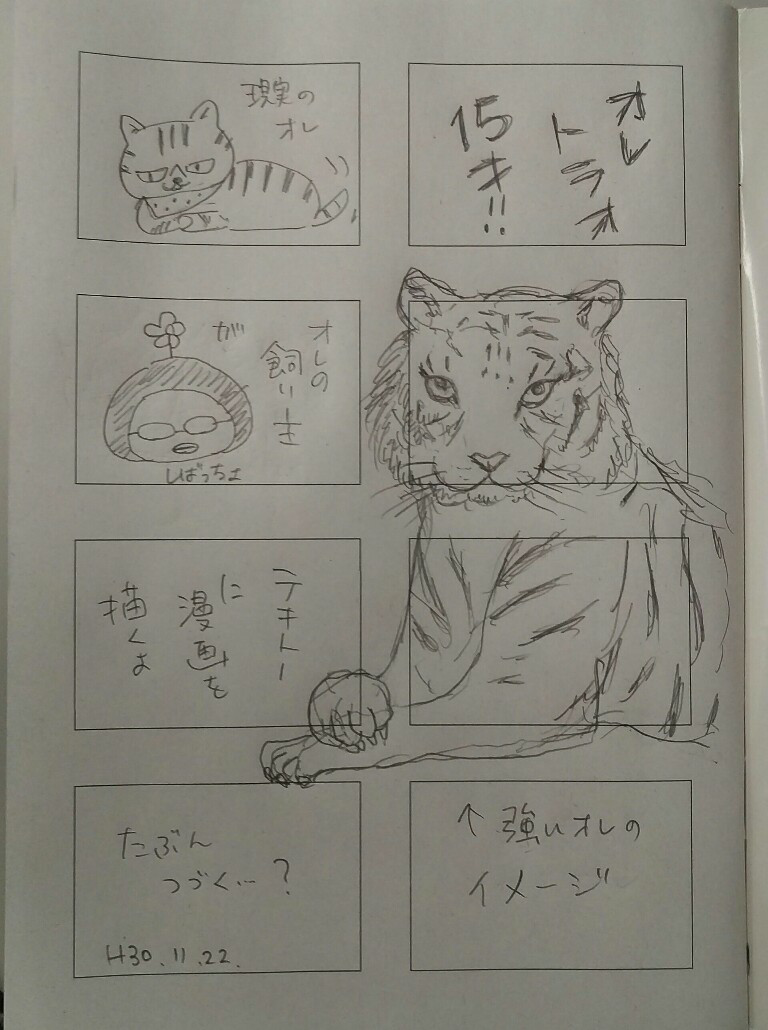 オレ
トラオ
15才!!
↑強いオレの
イメージ
現実の
オレ
オレの
飼い主
が
しばっちょ
テキトー
に
漫画を
描くよ
たぶん
つづく…?
H30.11.22.